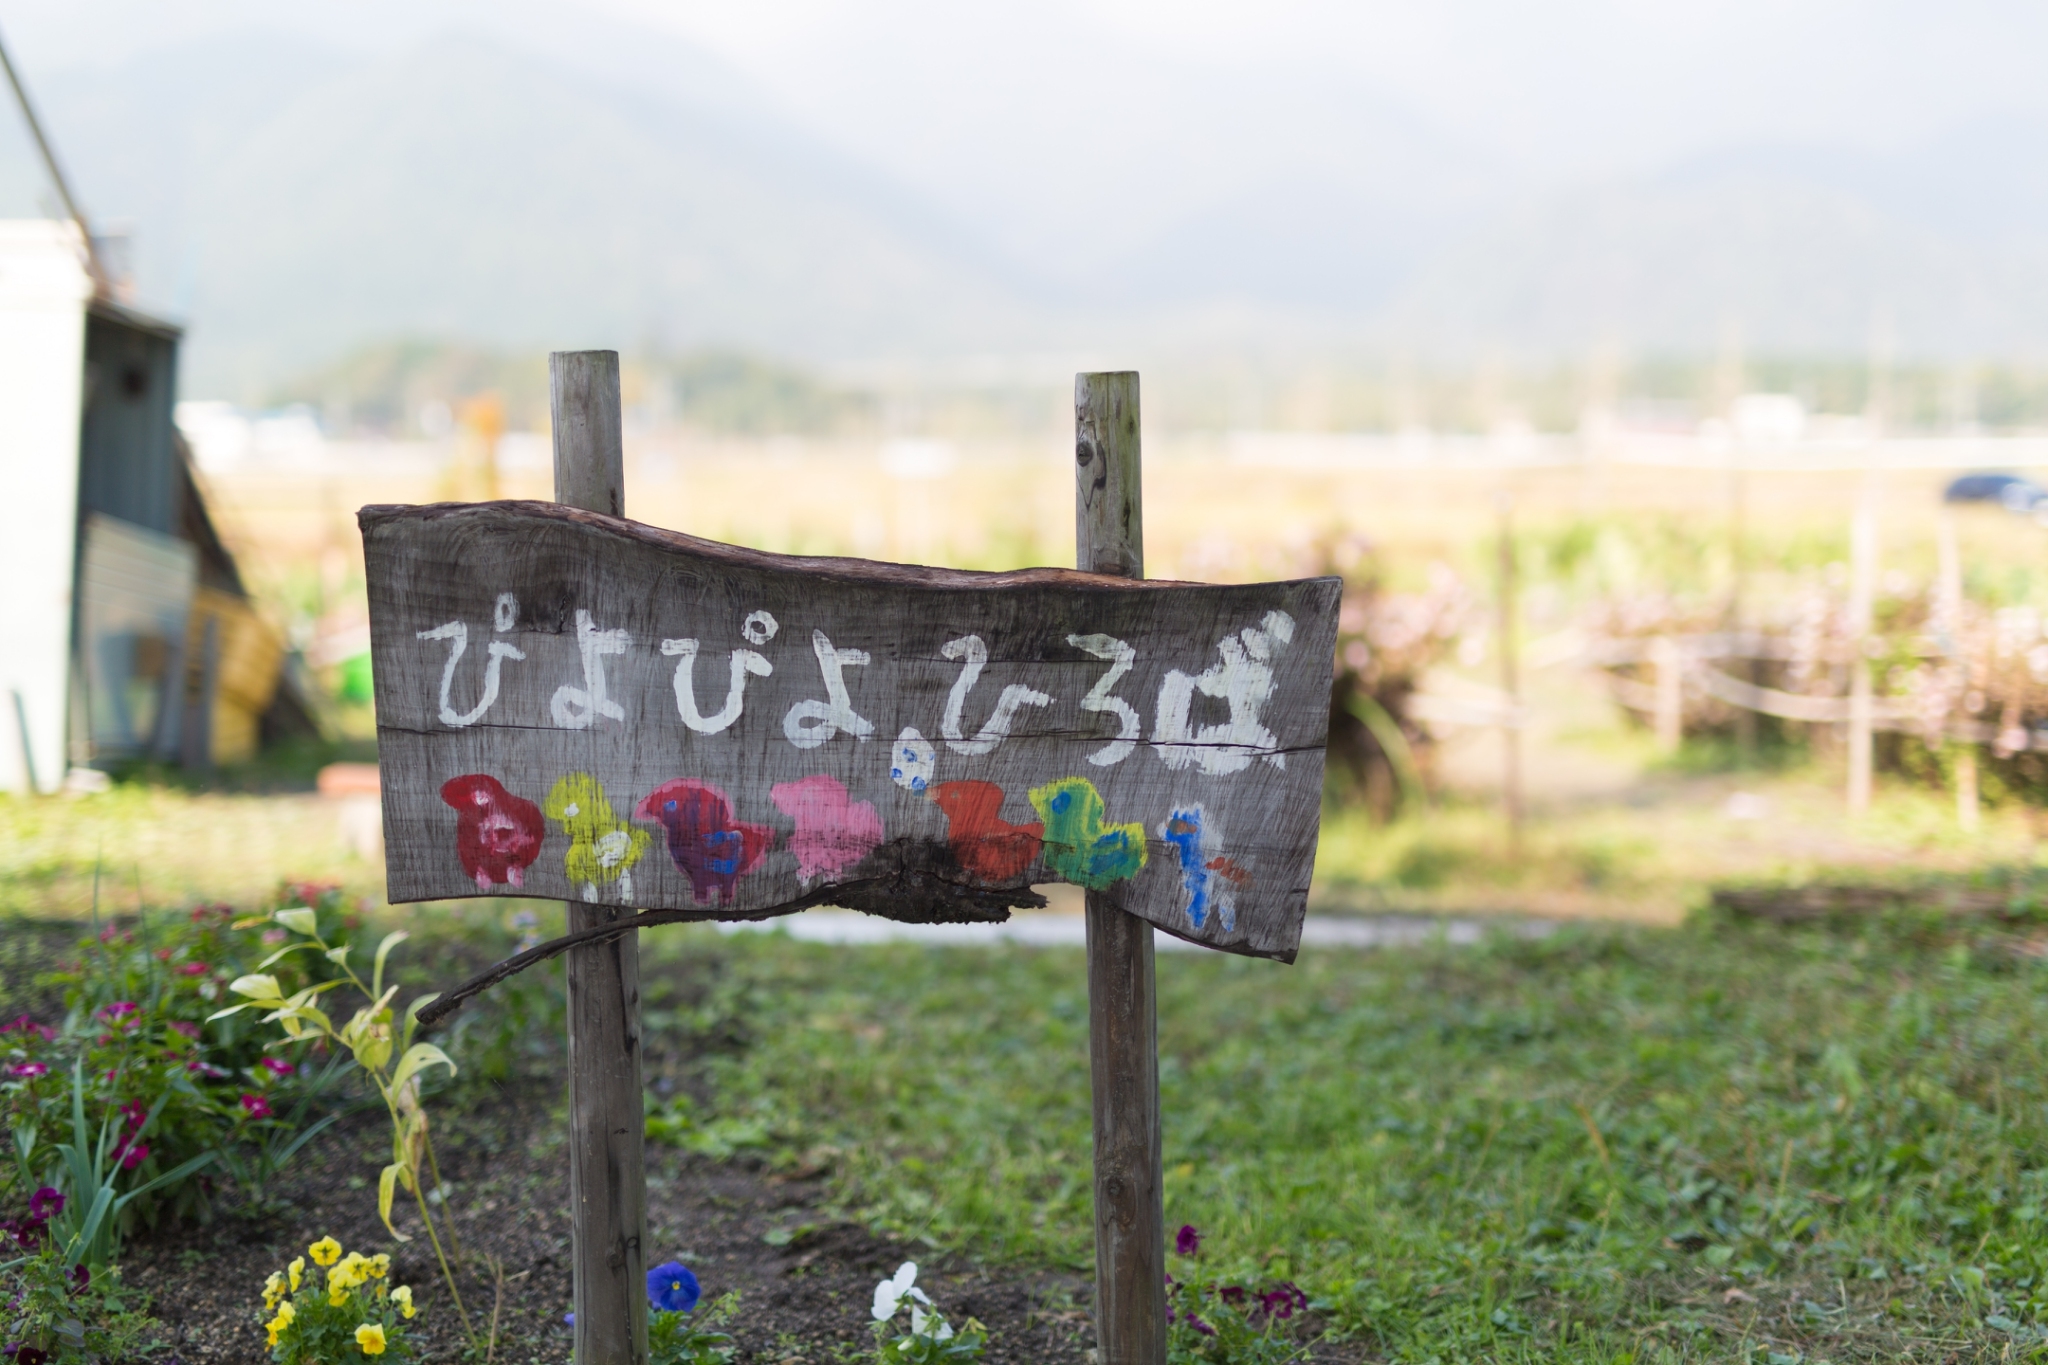 ぴよぴよひろば